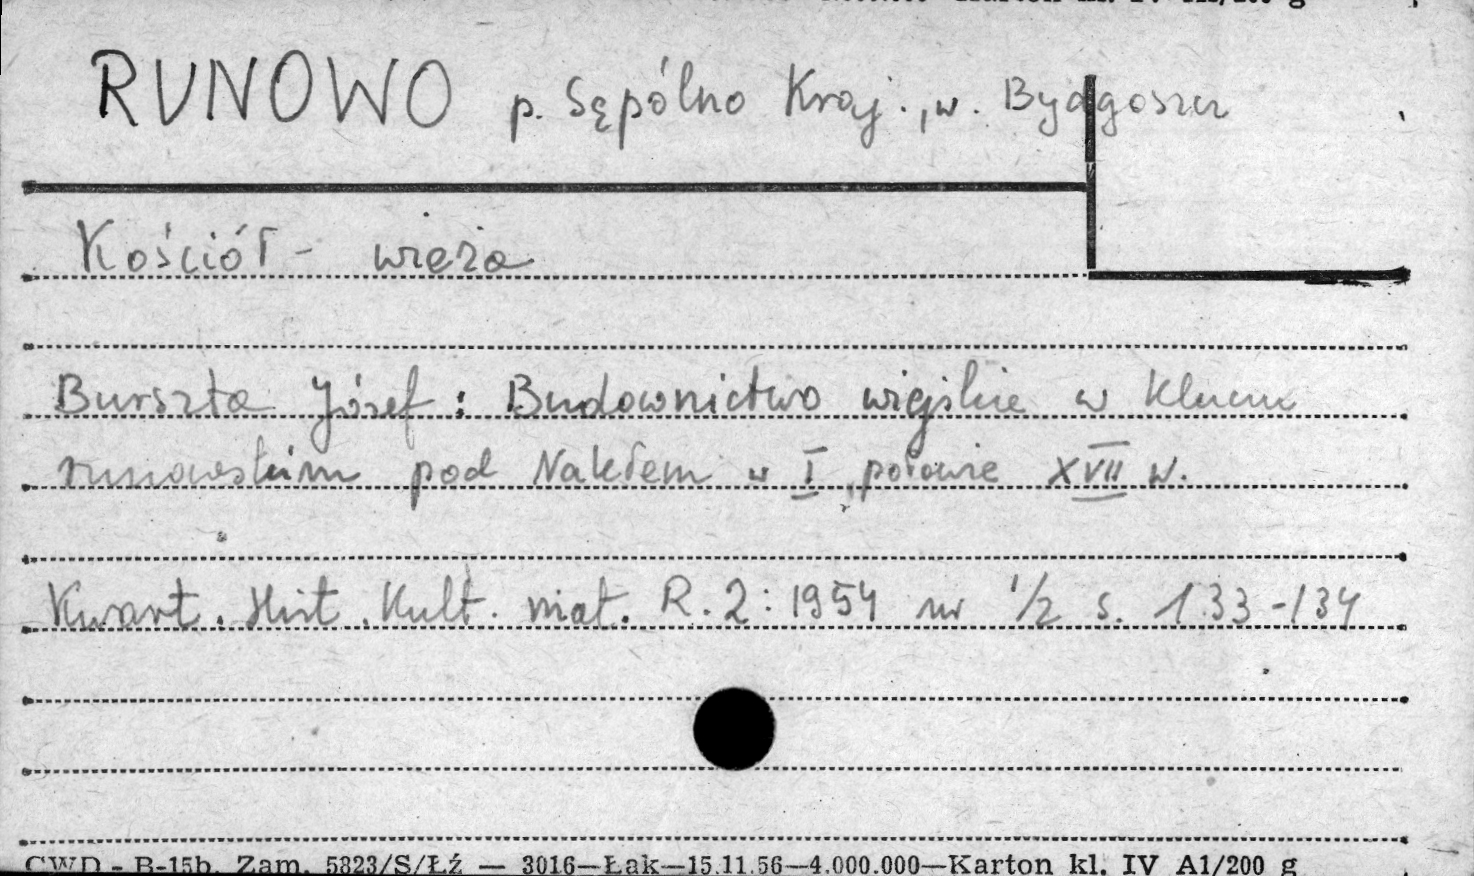 RUNOWO p. Sępólno Kraj., w. Bydgoszcz
Kościół - wieża
Burszta Józef : Budownictwo wiejskie w kluczu
runowskim pod Nakłem w I połowie XVII w.
Kwart. Hist. Kult. mat. R. 2 : 1954 nr 1/2 s. 133-134
CWD - B-15b. Zam. 5823/S/Łź — 3016—Łak—15.11.56—4.000.000—Karton kl. IV A1/200 g